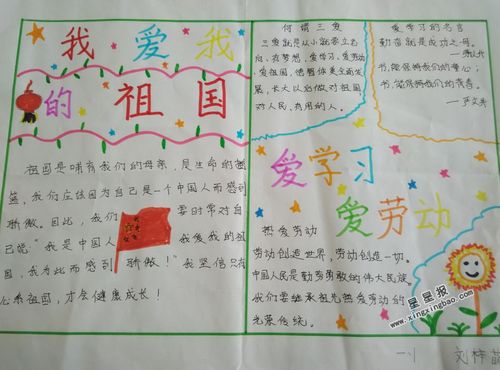 我爱我
的祖国
祖国是哺育我们的母亲,是生命的摇
篮,我们应该因为自己是一个中国人而感到
骄傲。因此,我们要时常对自
己说:"我是中国人我爱我的祖
国,我为此而感到骄傲!"我坚信只有
心系祖国,才会健康成长!
何谓三爱
三爱就是从小就要立志
向,有梦想,爱学习,爱劳动,
爱祖国,德智体美全面发
展,长大以后做对祖国
对人民,有用的人。
爱学习的名言
勤奋就是成功之母。
书,能保持我们的童心;
书,能保持我们的青春。
——严文井
爱学习
爱劳动
热爱劳动
劳动创造世界,劳动创造一切。
中国人民是勤劳勇敢的伟大民族
我们要继承祖先热爱劳动的
光荣传统。
星星报
www.xingxingbao.com
一.1 刘梓